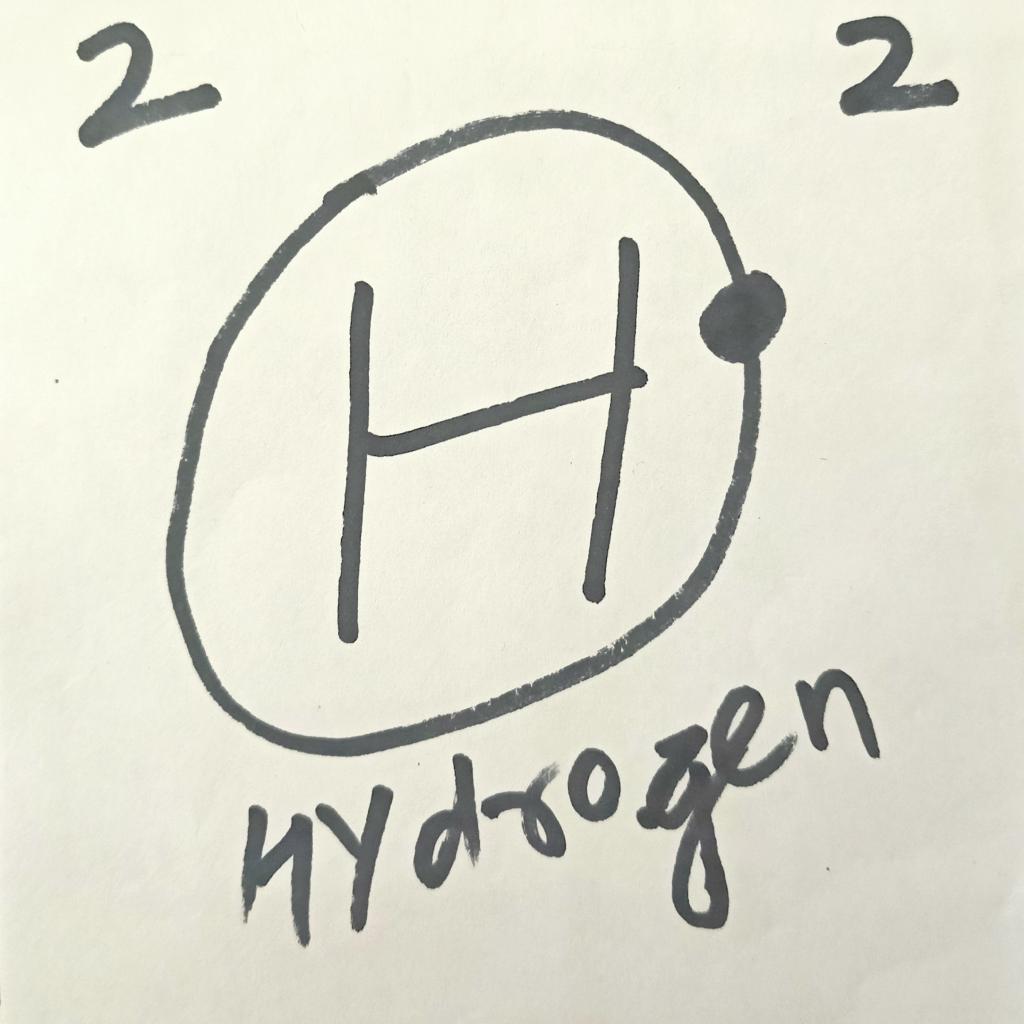 2 2
H
HYdrogen